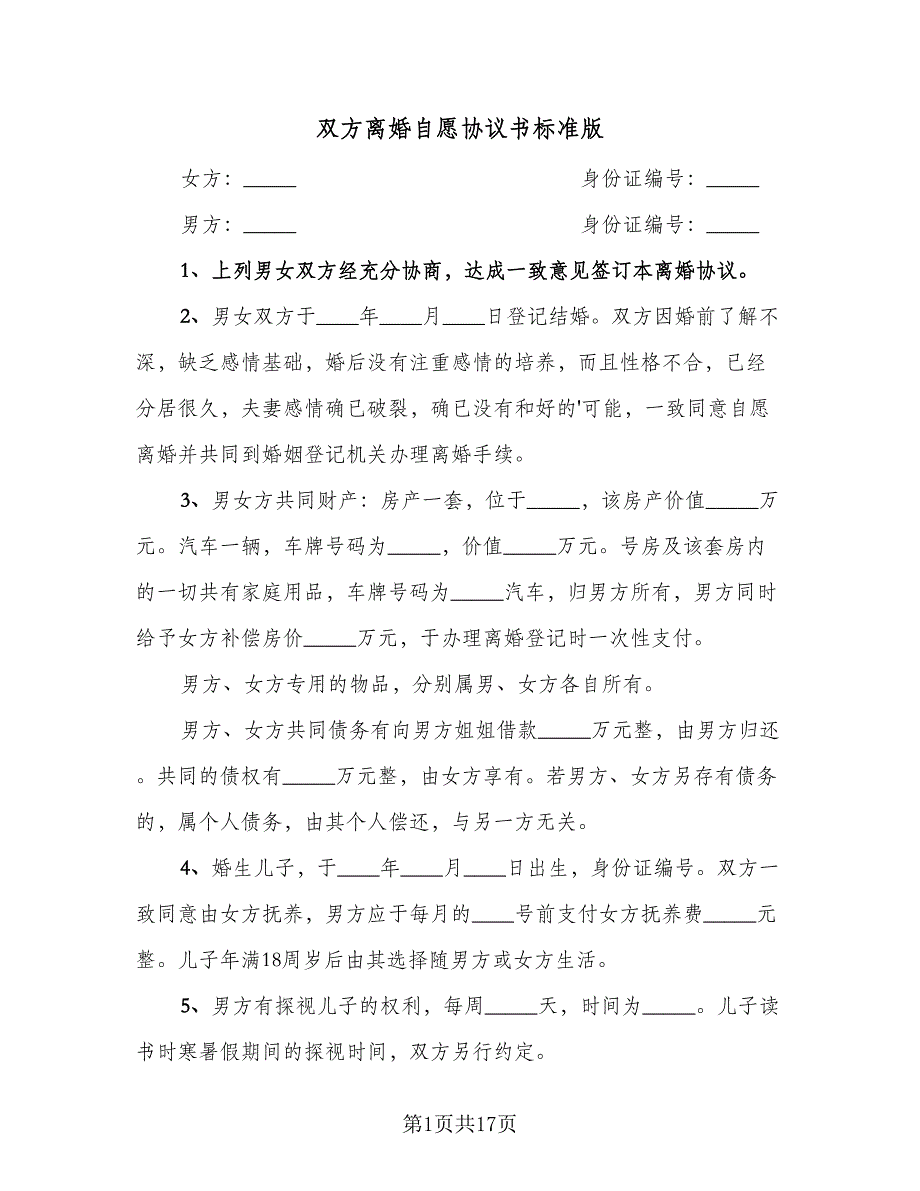 双方离婚自愿协议书标准版
女方：_____ 身份证编号：_____
男方：_____ 身份证编号：_____
1、上列男女双方经充分协商，达成一致意见签订本离婚协议。
2、男女双方于____年____月____日登记结婚。双方因婚前了解不
深，缺乏感情基础，婚后没有注重感情的培养，而且性格不合，已经
分居很久，夫妻感情确已破裂，确已没有和好的'可能，一致同意自愿
离婚并共同到婚姻登记机关办理离婚手续。
3、男女方共同财产：房产一套，位于_____，该房产价值_____万
元。汽车一辆，车牌号码为_____，价值_____万元。号房及该套房内
的一切共有家庭用品，车牌号码为_____汽车，归男方所有，男方同时
给予女方补偿房价_____万元，于办理离婚登记时一次性支付。
男方、女方专用的物品，分别属男、女方各自所有。
男方、女方共同债务有向男方姐姐借款_____万元整，由男方归还
。共同的债权有_____万元整，由女方享有。若男方、女方另存有债务
的，属个人债务，由其个人偿还，与另一方无关。
4、婚生儿子，于____年____月____日出生，身份证编号。双方一
致同意由女方抚养，男方应于每月的____号前支付女方抚养费_____元
整。儿子年满18周岁后由其选择随男方或女方生活。
5、男方有探视儿子的权利，每周_____天，时间为_____。儿子读
书时寒暑假期间的探视时间，双方另行约定。
第1页共17页